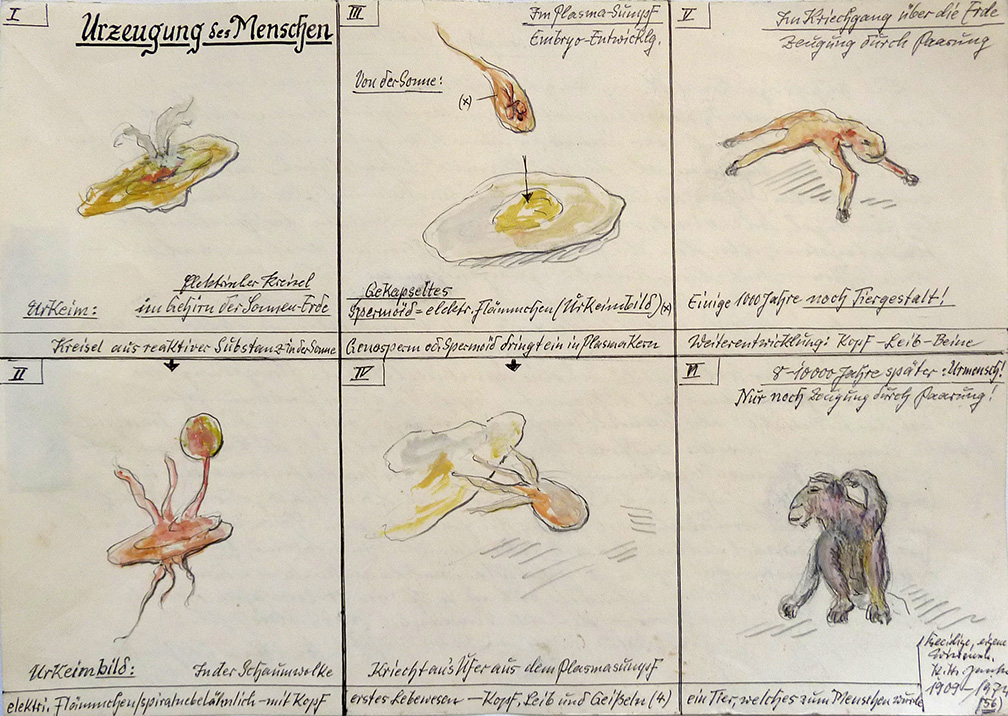 I
Urzeugung des Menschen
Urkeim:
Elektrischer Kreisel
im Gehirn der Sonnen-Erde
Kreisel aus reaktiver Substanz in der Sonne
II
Urkeimbild:
In der Schaumwolke
elektr. Flämmchen/spiralnebelähnlich - mit Kopf
III
Im Plasma-Sumpf
Embryo-Entwicklg.
Von der Sonne:
(x)
Gekapseltes
Spermoid = elektr. Flämmchen (Urkeimbild) (x)
Genosperm od. Spermoid dringt ein in Plasmakern
IV
Kriecht ans Ufer aus dem Plasmasumpf
erstes Lebewesen - Kopf, Leib und Geißeln (4)
V
Im Kriechgang über die Erde
Zeugung durch Paarung
Einige 1000 Jahre noch Tiergestalt!
Weiterentwicklung: Kopf - Leib - Beine
VI
8-10000 Jahre später: Urmensch!
Nur noch Zeugung durch Paarung!
ein Tier, welches zum Menschen wurde
eigene
1909 -
56